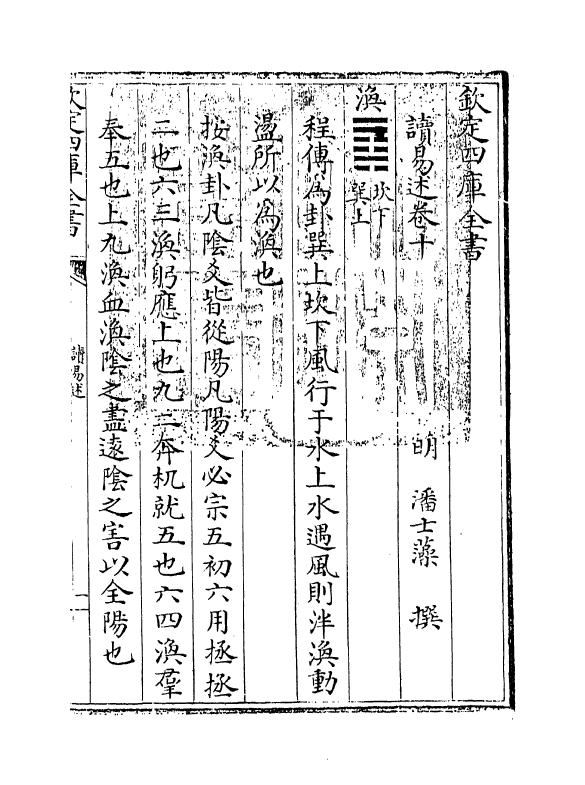 欽定四庫全書
讀易述卷十
明 潘士藻 撰
渙䷺坎下巽上
程傳為卦巽上坎下風行于水上水遇風則泮渙動
盪所以為渙也
按渙卦凡陰爻皆從陽凡陽爻必宗五初六用拯拯
二也六三渙躬應上也九二奔机就五也六四渙羣
奉五也上九渙血渙陰之盡遠陰之害以全陽也
欽定四庫全書
讀易述
一